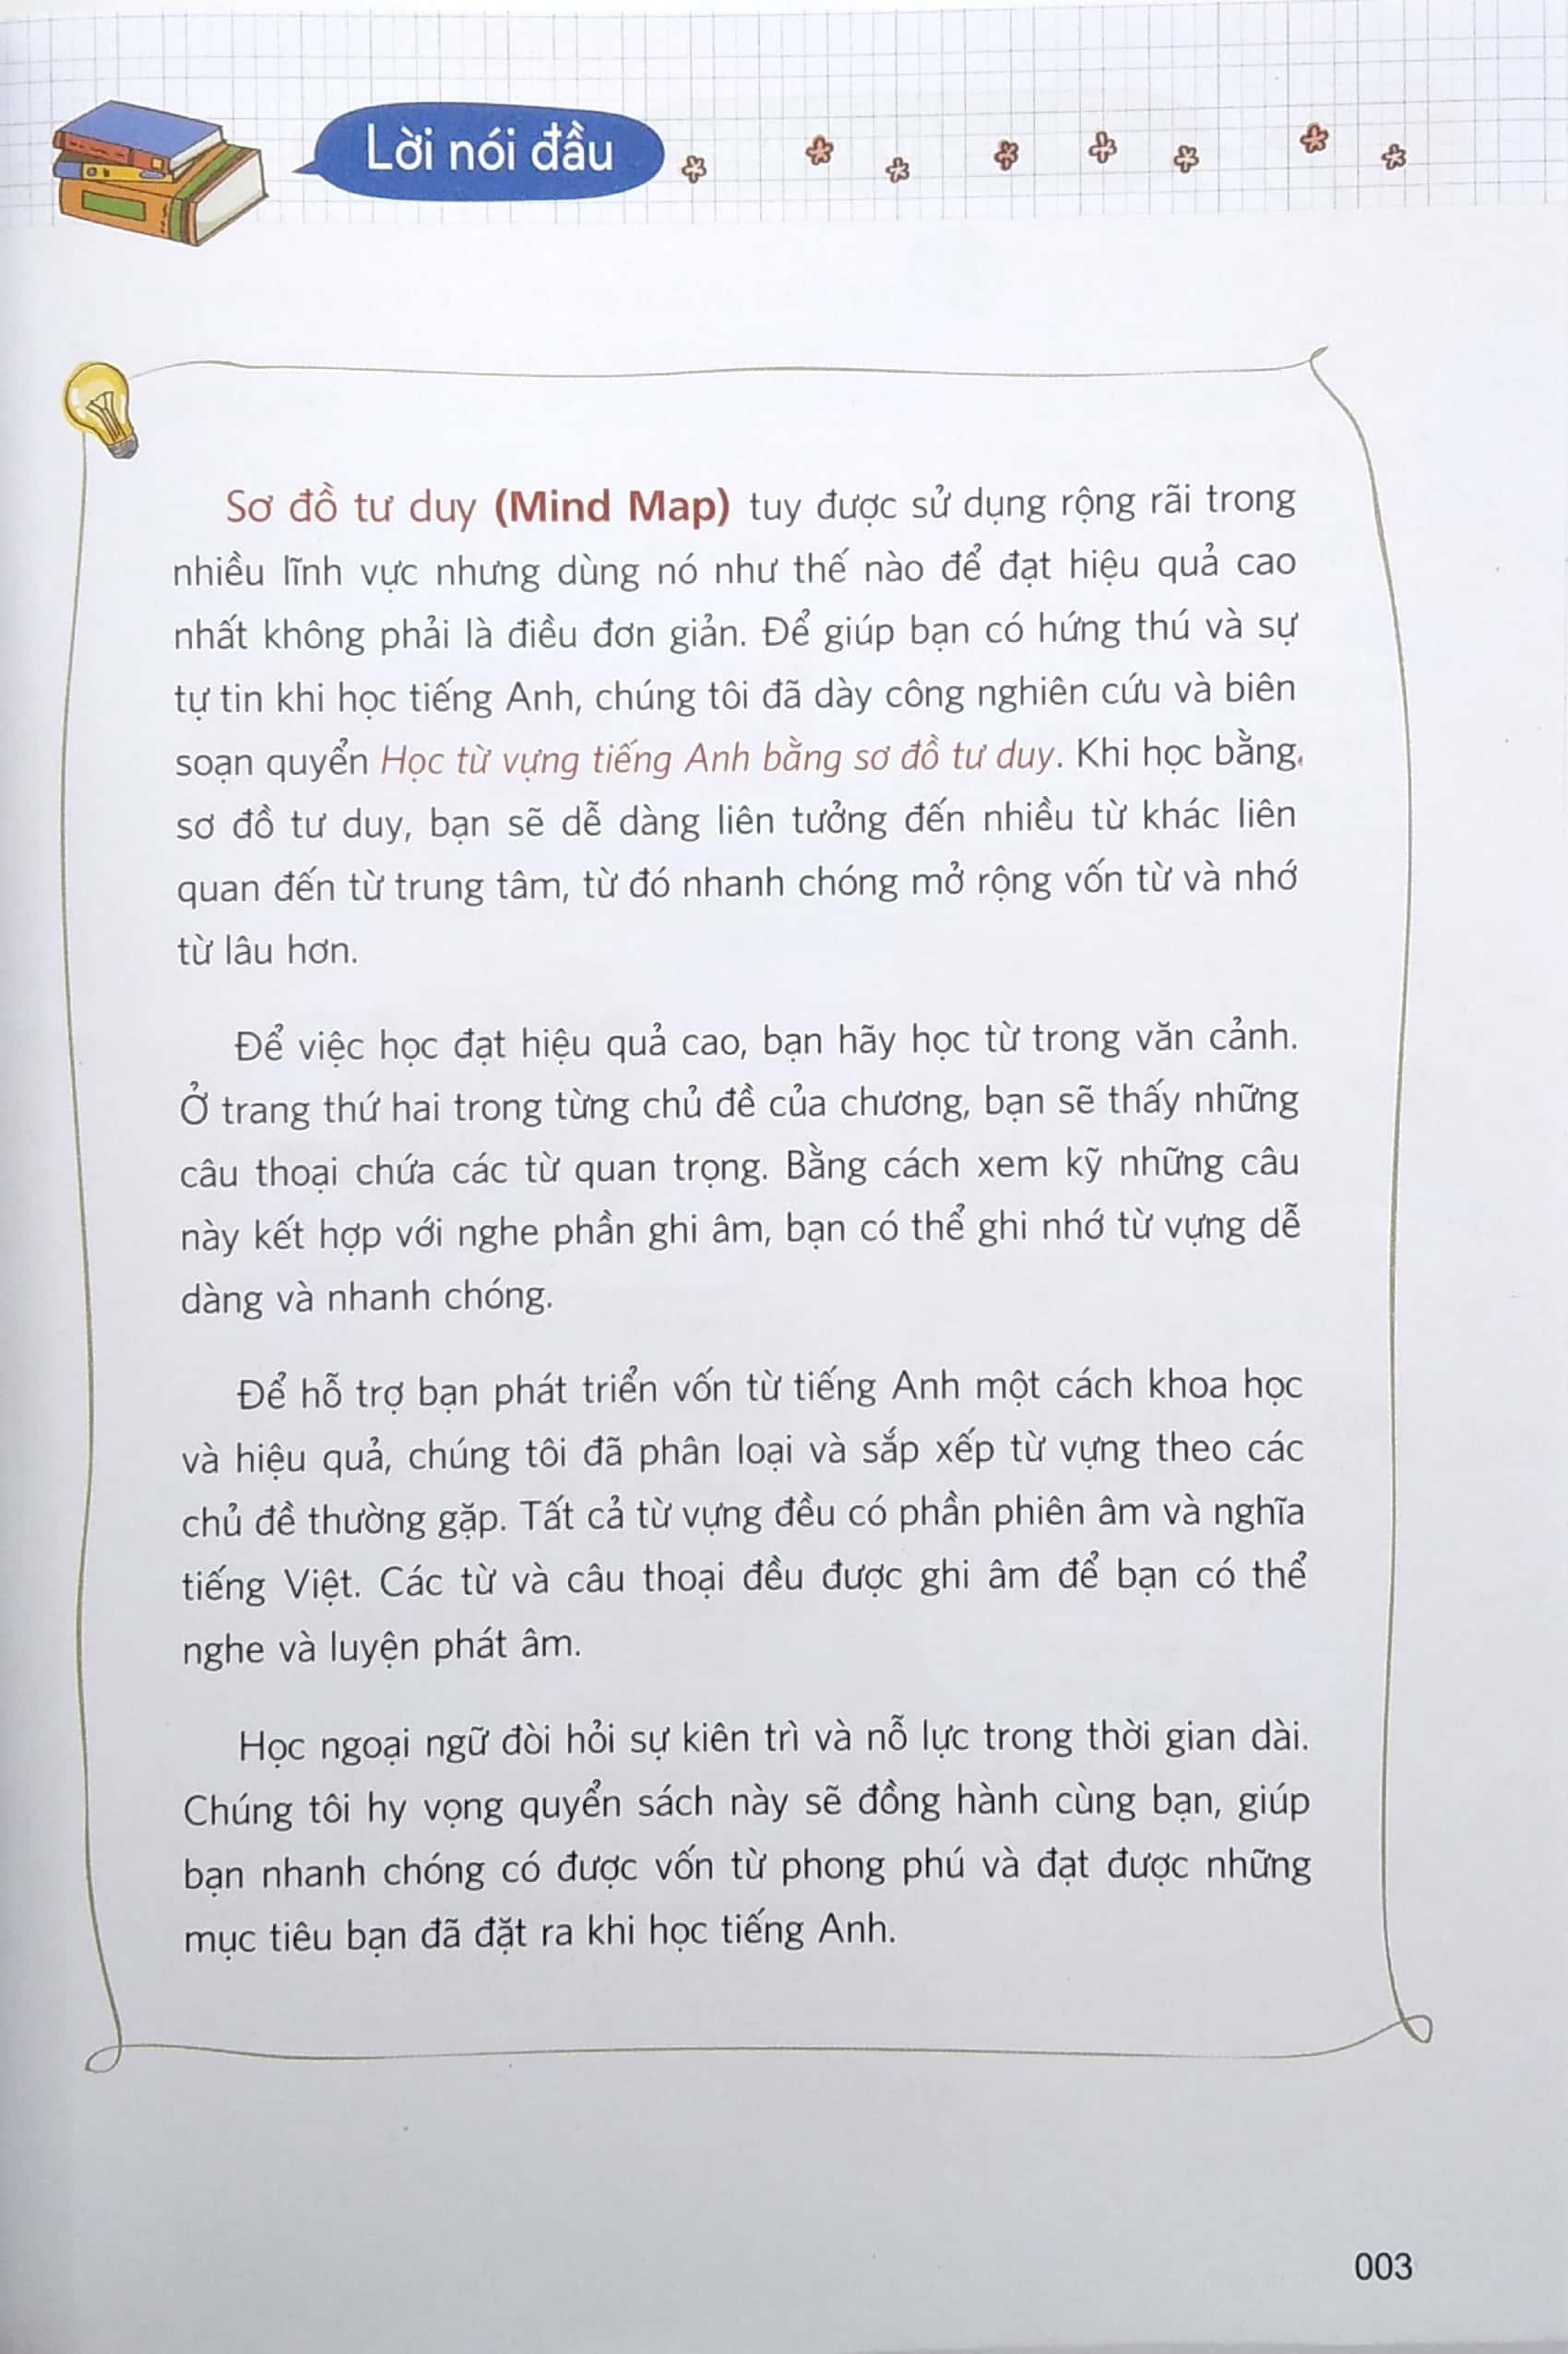 Lời nói đầu
Sơ đồ tư duy (Mind Map) tuy được sử dụng rộng rãi trong
nhiều lĩnh vực nhưng dùng nó như thế nào để đạt hiệu quả cao
nhất không phải là điều đơn giản. Để giúp bạn có hứng thú và sự
tự tin khi học tiếng Anh, chúng tôi đã dày công nghiên cứu và biên
soạn quyển Học từ vựng tiếng Anh bằng sơ đồ tư duy. Khi học bằng
sơ đồ tư duy, bạn sẽ dễ dàng liên tưởng đến nhiều từ khác liên
quan đến từ trung tâm, từ đó nhanh chóng mở rộng vốn từ và nhớ
từ lâu hơn.
Để việc học đạt hiệu quả cao, bạn hãy học từ trong văn cảnh.
Ở trang thứ hai trong từng chủ đề của chương, bạn sẽ thấy những
câu thoại chứa các từ quan trọng. Bằng cách xem kỹ những câu
này kết hợp với nghe phần ghi âm, bạn có thể ghi nhớ từ vựng dễ
dàng và nhanh chóng.
Để hỗ trợ bạn phát triển vốn từ tiếng Anh một cách khoa học
và hiệu quả, chúng tôi đã phân loại và sắp xếp từ vựng theo các
chủ đề thường gặp. Tất cả từ vựng đều có phần phiên âm và nghĩa
tiếng Việt. Các từ và câu thoại đều được ghi âm để bạn có thể
nghe và luyện phát âm.
Học ngoại ngữ đòi hỏi sự kiên trì và nỗ lực trong thời gian dài.
Chúng tôi hy vọng quyển sách này sẽ đồng hành cùng bạn, giúp
bạn nhanh chóng có được vốn từ phong phú và đạt được những
mục tiêu bạn đã đặt ra khi học tiếng Anh.
003